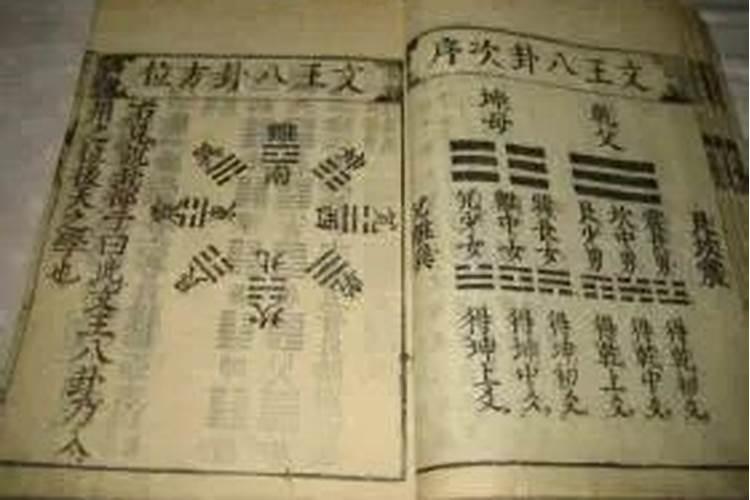 文王八卦次序
乾父
坤母
艮坎震
震長男
坎中男
艮少男
巽長女
離中女
兌少女
兌離巽
得乾初爻
得乾中爻
得乾上爻
得坤初爻
得坤中爻
得坤上爻
文王八卦方位
離
南
坤
兌
西
乾
北
坎
艮
震
東
巽
右見說卦邵子曰此文王八卦乃入
用之位後天之學也